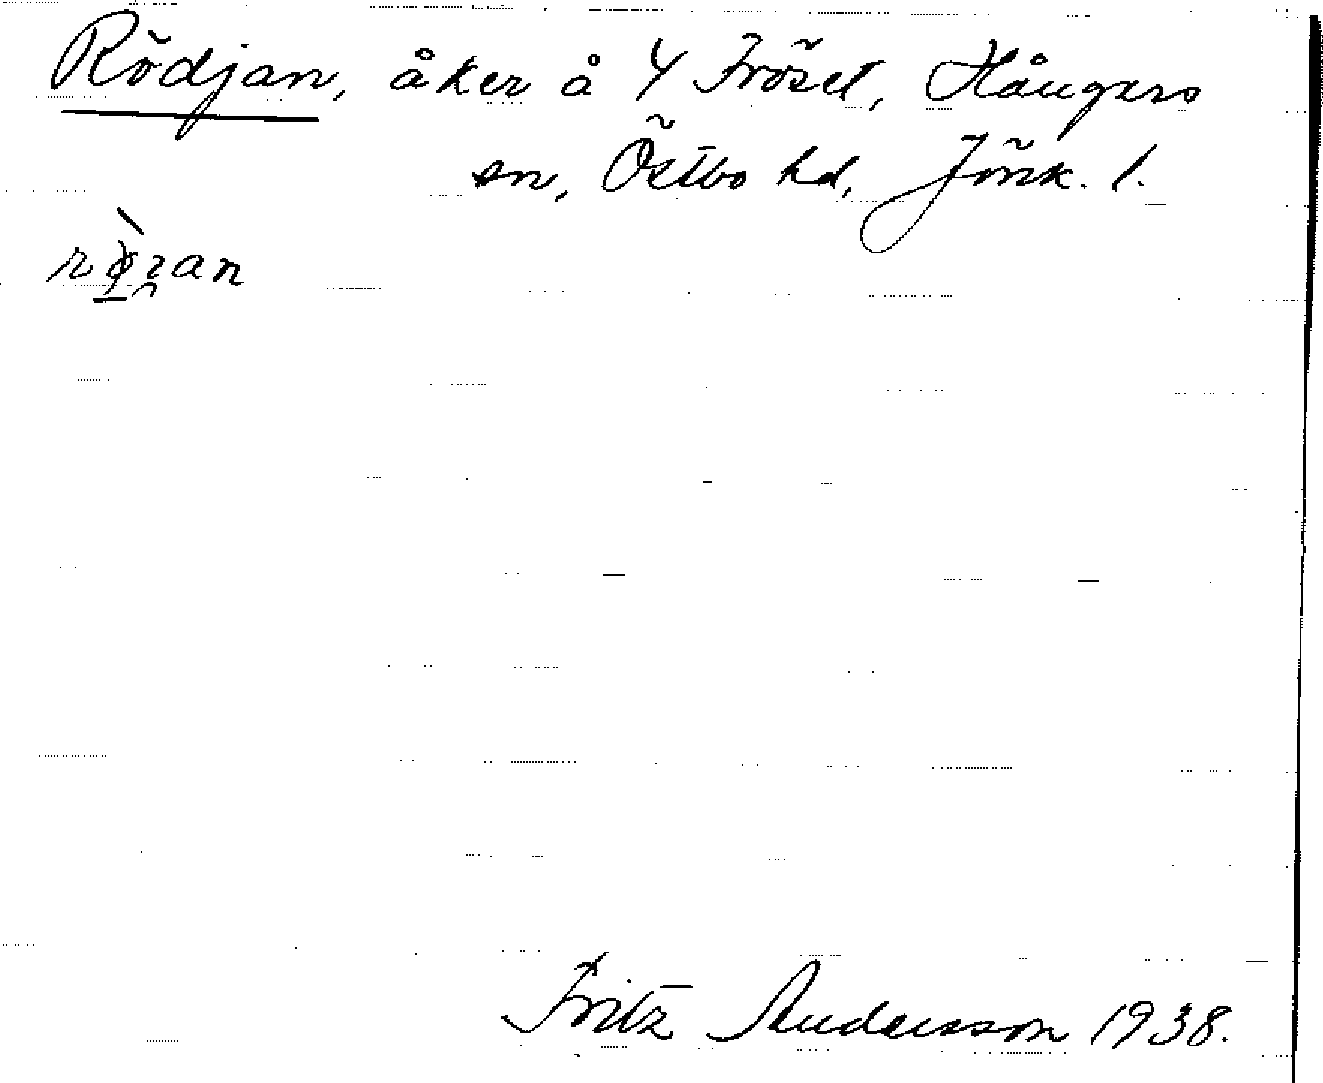 Rödjan, åker å Y Fröset, Hångers
sn, Östbo hd, Jönk. l.
Fritz Andersson 1938.